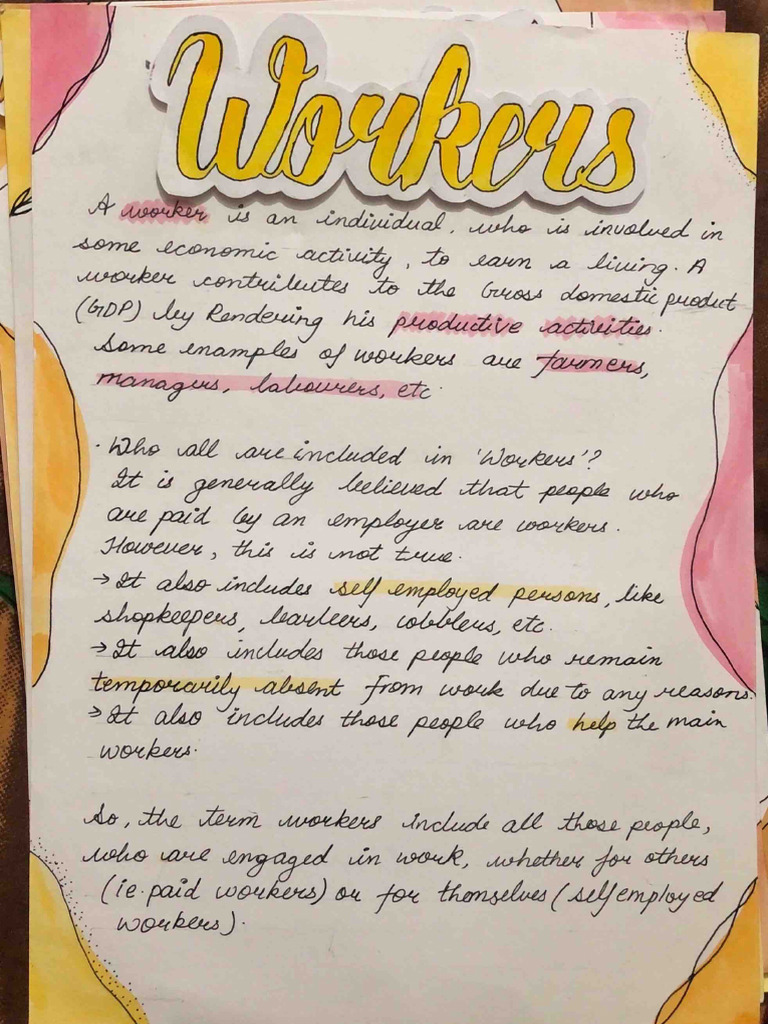 Workers
A worker is an individual, who is involved in
some economic activity, to earn a living. A
worker contributes to the Gross domestic product
(GDP) by Rendering his productive activities.
Some examples of workers are farmers,
managers, labourers, etc.
· Who all are included in 'Workers'?
It is generally believed that people who
are paid by an employer are workers.
However, this is not true.
→ It also includes self employed persons, like
shopkeepers, barbers, cobblers, etc.
→ It also includes those people who remain
temporarily absent from work due to any reasons.
→ It also includes those people who help the main
workers.
So, the term workers include all those people,
who are engaged in work, whether for others
(ie. paid workers) or for themselves (self employed
workers).